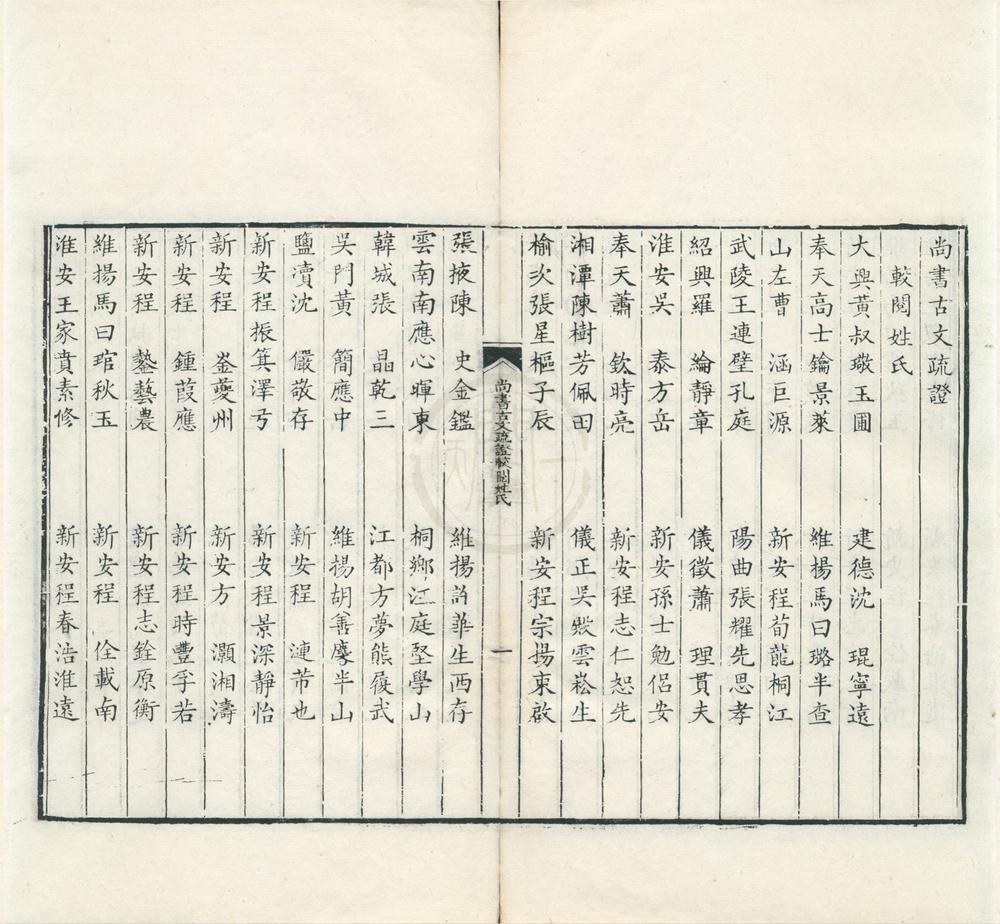 尚書古文疏證
較閱姓氏
大興黃叔璥玉圃　建德沈　琨寧遠
奉天高士鑰景萊　維揚馬曰璐半查
山左曹　涵巨源　新安程荀龍桐江
武陵王連璧孔庭　陽曲張耀先思孝
紹興羅　綸靜章　儀徵蕭　理貫夫
淮安吳　泰方岳　新安孫士勉侶安
奉天蕭　欽時亮　新安程志仁恕先
湘潭陳樹芳佩田　儀正吳　雲崧生
榆次張星樞子辰　新安程宗揚東啟
尚書古文疏證較閱姓氏　一
張掖陳　史金鑑　維揚許華生西存
雲南南應心暉東　桐鄉江庭堅學山
韓城張　晶乾三　江都方夢熊履武
吳門黃　簡應中　維揚胡善麐半山
鹽瀆沈　儼敬存　新安程　漣芾也
新安程振箕澤弓　新安程景深靜怡
新安程　崟夔州　新安方　灝湘濤
新安程　鍾葭應　新安程時豐孚若
新安程　鏊藝農　新安程志銓原衡
維揚馬曰琯秋玉　新安程　佺載南
淮安王家賁素修　新安程春浩淮遠